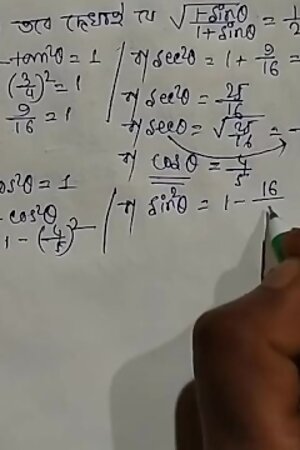 তবে দেখাও যে √(1-sinθ)/(1+sinθ) = 1/2
tan²θ = 1
(3/4)² = 1
9/16 = 1
বা sec²θ = 1 + 9/16 =
বা sec²θ = 25/16
বা secθ = √25/16 =
বা cosθ = 4/5
os²θ = 1
cos²θ
1 - (4/5)²
বা sin²θ = 1 - 16